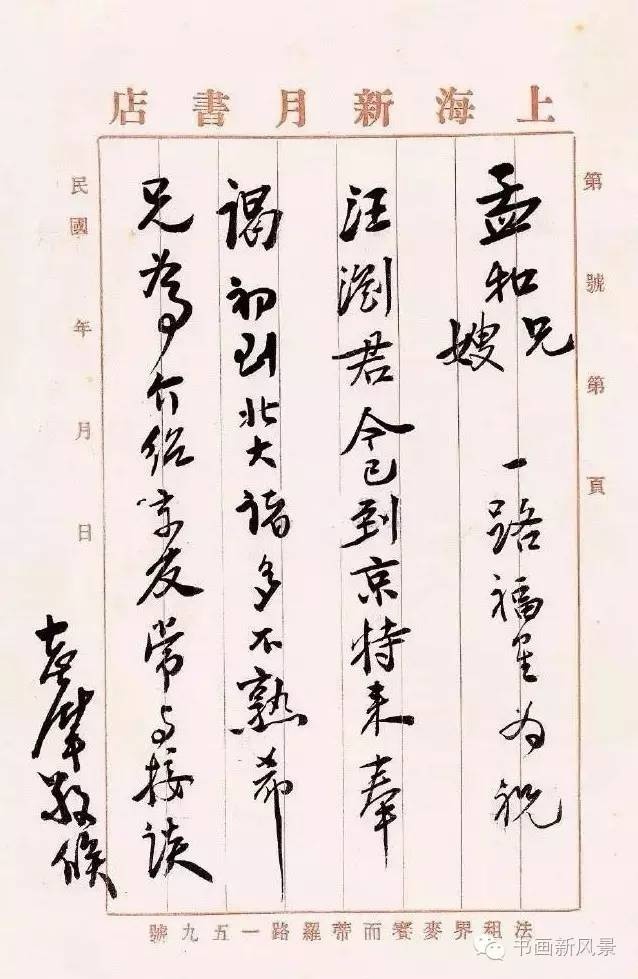 上海新月書店
第 號 第 頁
孟和兄嫂 一路福星为祝
汪瀏君今已到京特来奉
謁初到北大諸多不熟希
兄為介紹京友常与接談
志摩敬候
民國 年 月 日
法租界麥賽而蒂羅路一五九號
书画新风景